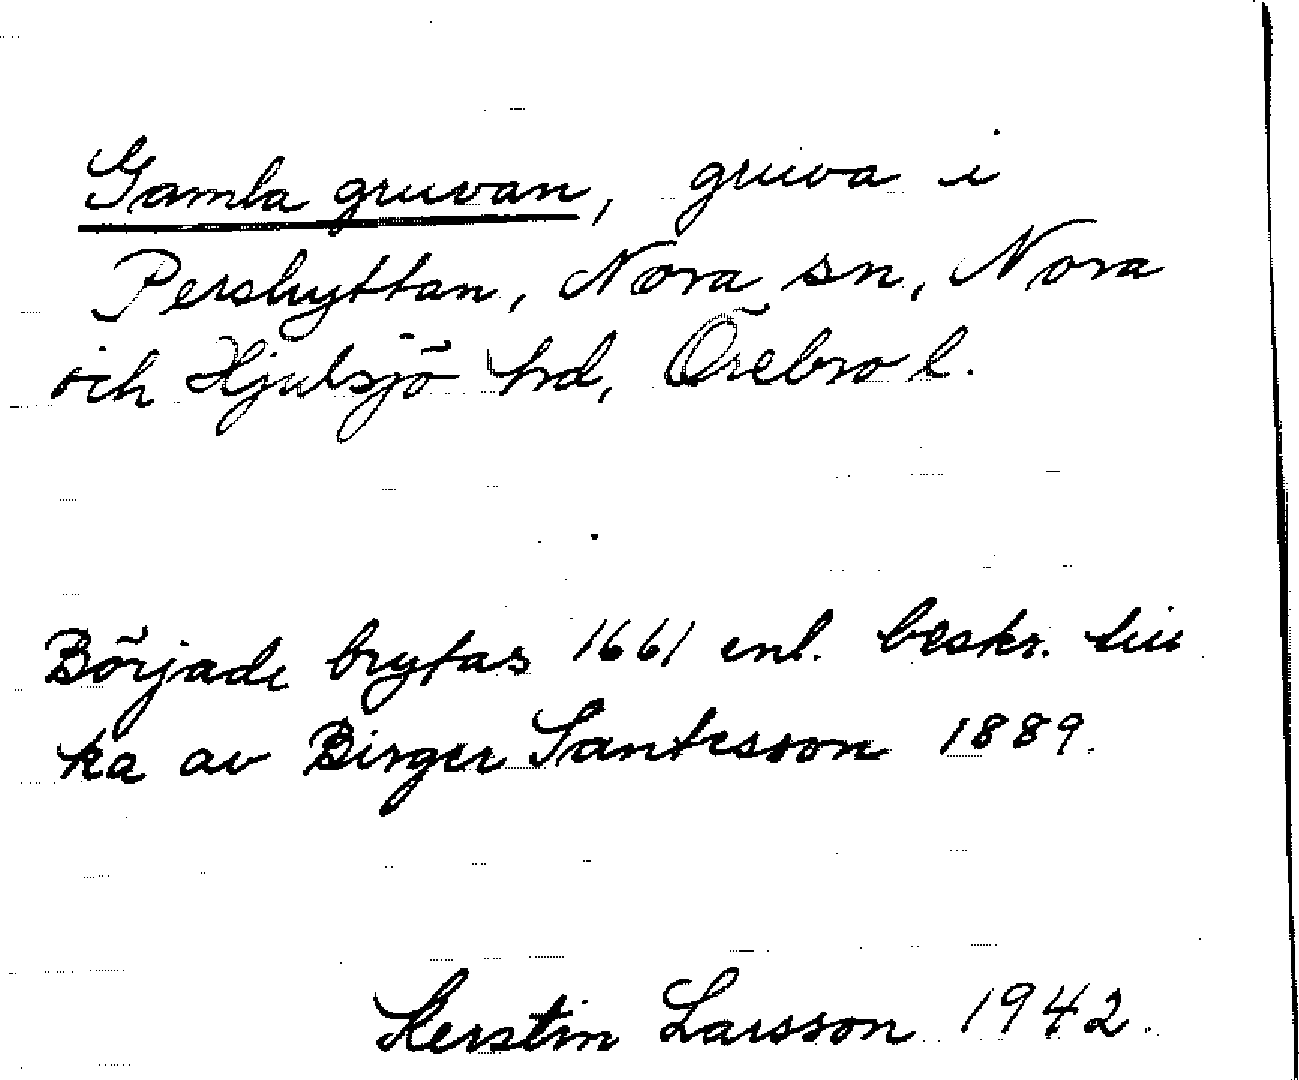 Gamla gruvan, gruva i
Pershyttan, Nora sn, Nora
och Hjulsjö hd, Örebro l.
Började brytas 1661 enl. beskr. till
ka av Birger Santesson 1889.
Kerstin Larsson 1942.